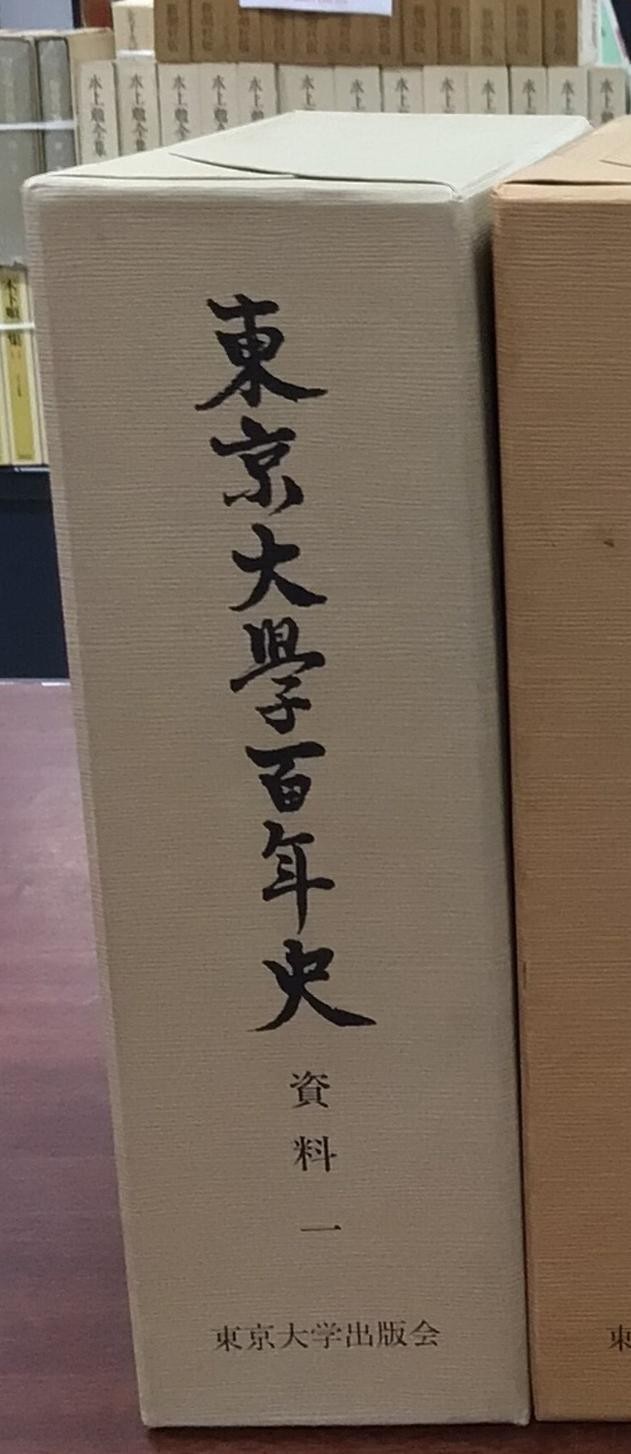 東京大學百年史
資料一
東京大学出版会
東
水上勉全集
水上勉全集
水上勉
水上勉
水上勉
水上
水上
水上
水上
水上
水上
水上
水上